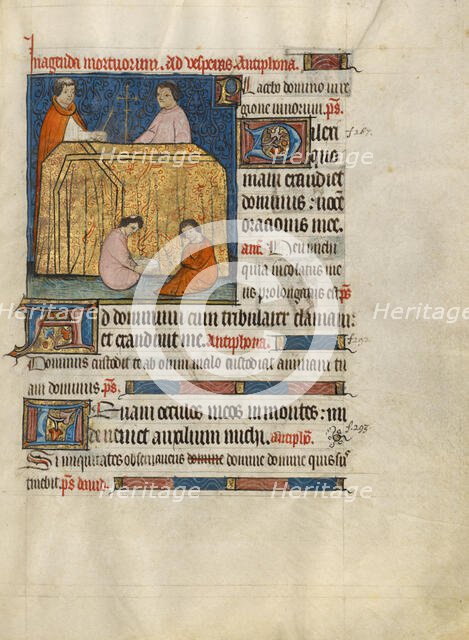 In agenda mortuorum. Ad vesperas. Antiphona.
Placebo domino in re
gione vivorum. ps.
Dilexi
f. 287.
quo
niam exaudiet
dominus: voce
orationis mee.
an. Heu michi
quia incolatus me
us prolongatus est ps
Ad dominum cum tribularer clamavi:
et exaudivit me. Antiphona. f. 292.
Dominus custodit te ab omni malo custodiat animam tu
am dominus. ps.
Levavi oculos meos in montes: un
f. 293.
de veniet auxilium michi. antipho.
Si iniquitates observaveris domine domine domine quis sus
tinebit. ps david.
Heritage
Heritage
Heritage
Heritage
Heritage
Heritage
Heritage